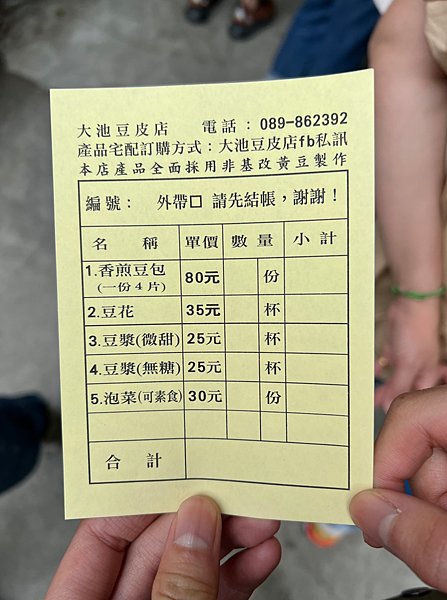 大池豆皮店 電話：089-862392
產品宅配訂購方式：大池豆皮店fb私訊
本店產品全面採用非基改黃豆製作
編號： 外帶□ 請先結帳，謝謝！
名稱 單價 數量 小計
1.香煎豆包 80元 份
(一份4片)
2.豆花 35元 杯
3.豆漿(微甜) 25元 杯
4.豆漿(無糖) 25元 杯
5.泡菜(可素食) 30元 份
合計